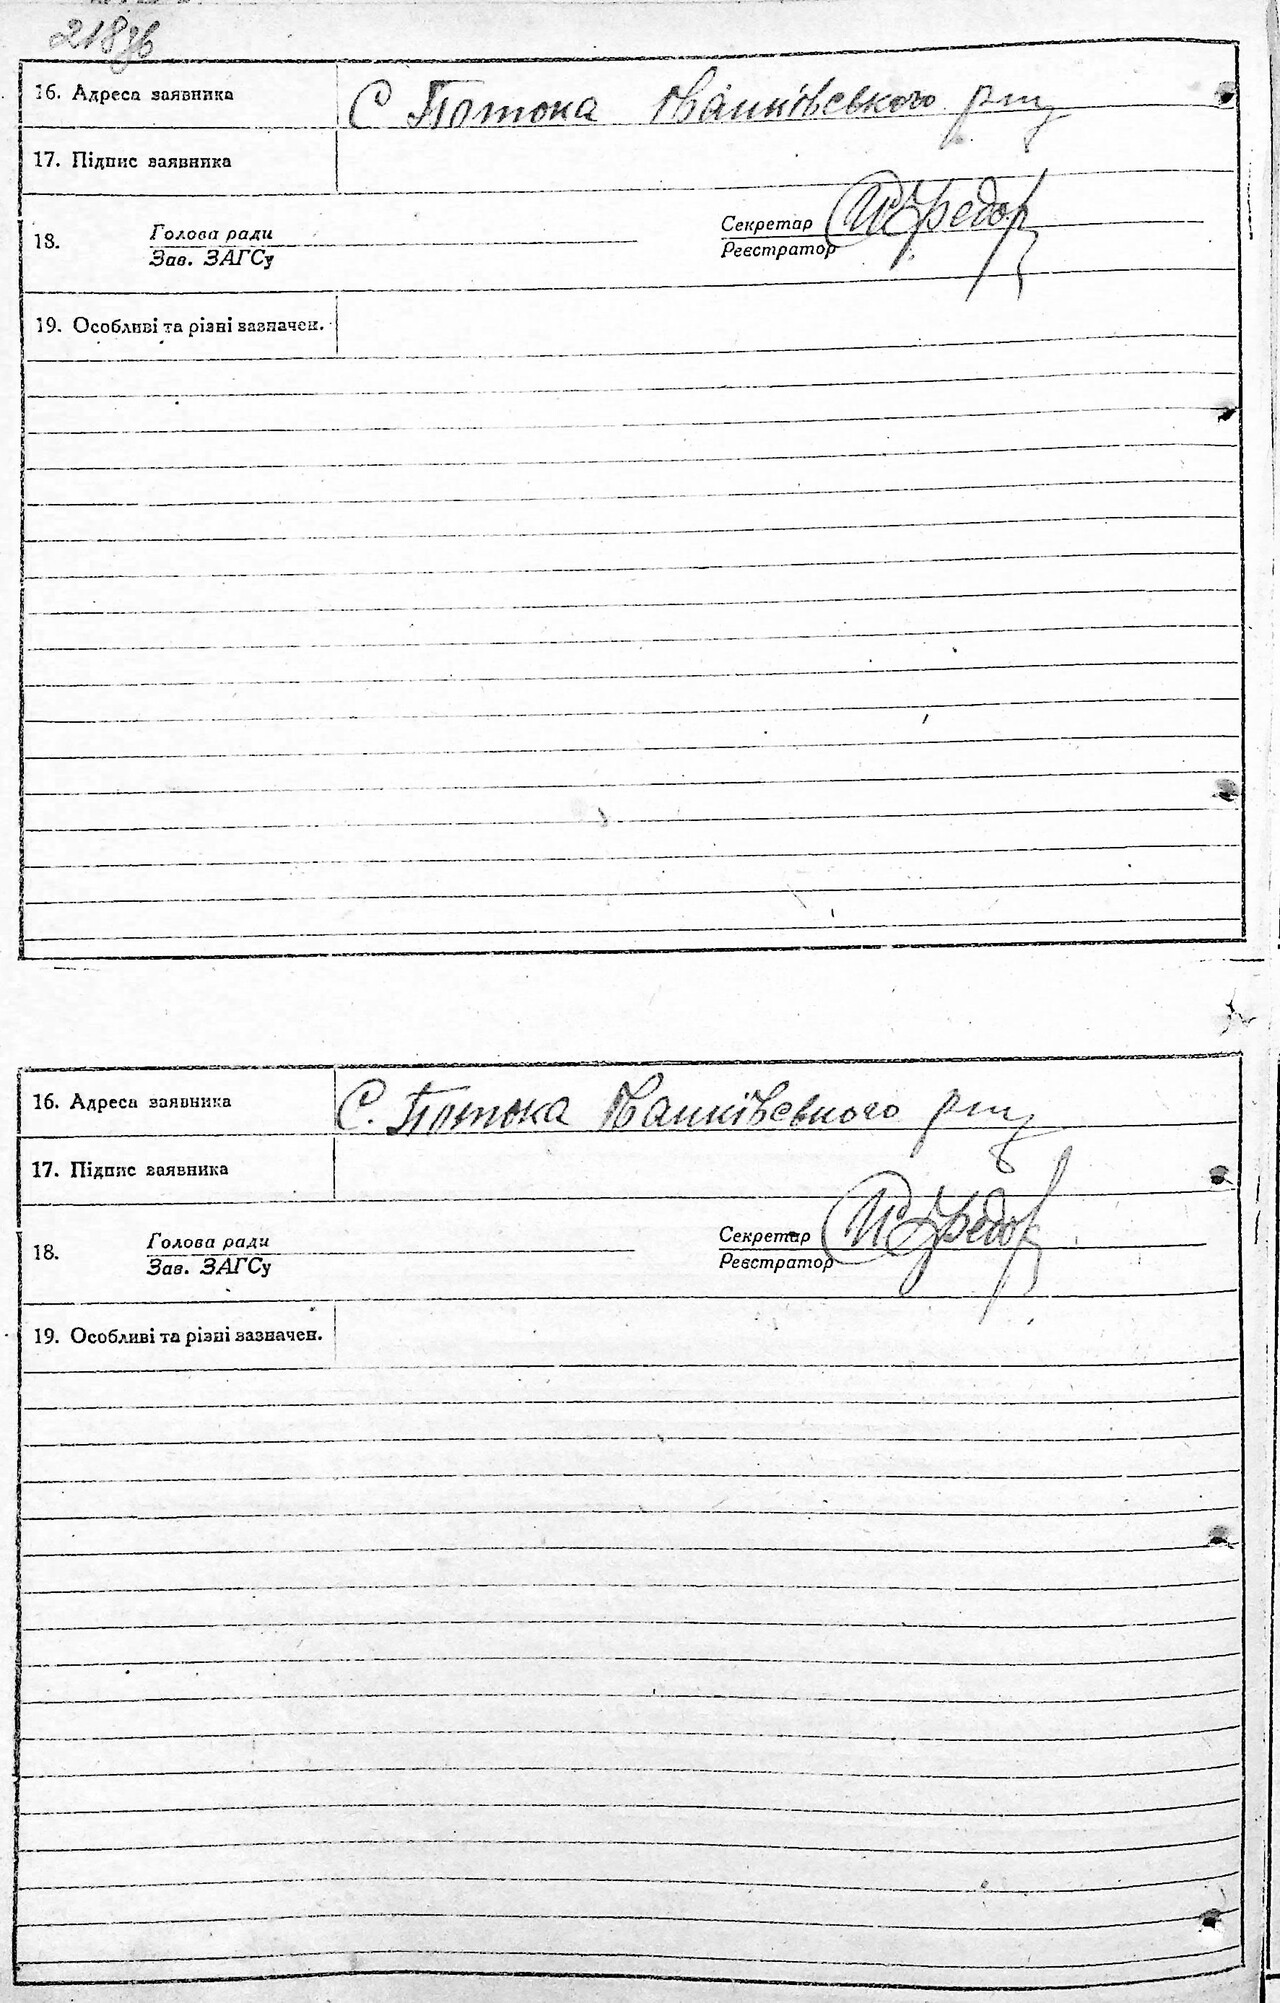 218зв
16. Адреса заявника С Потока Іванківського р-ну
17. Підпис заявника
18. Голова ради Секретар
Зав. ЗАГСу Реєстратор
19. Особливі та різні зазначен.
16. Адреса заявника С. Потока Іванківського р-ну
17. Підпис заявника
18. Голова ради Секретар
Зав. ЗАГСу Реєстратор
19. Особливі та різні зазначен.